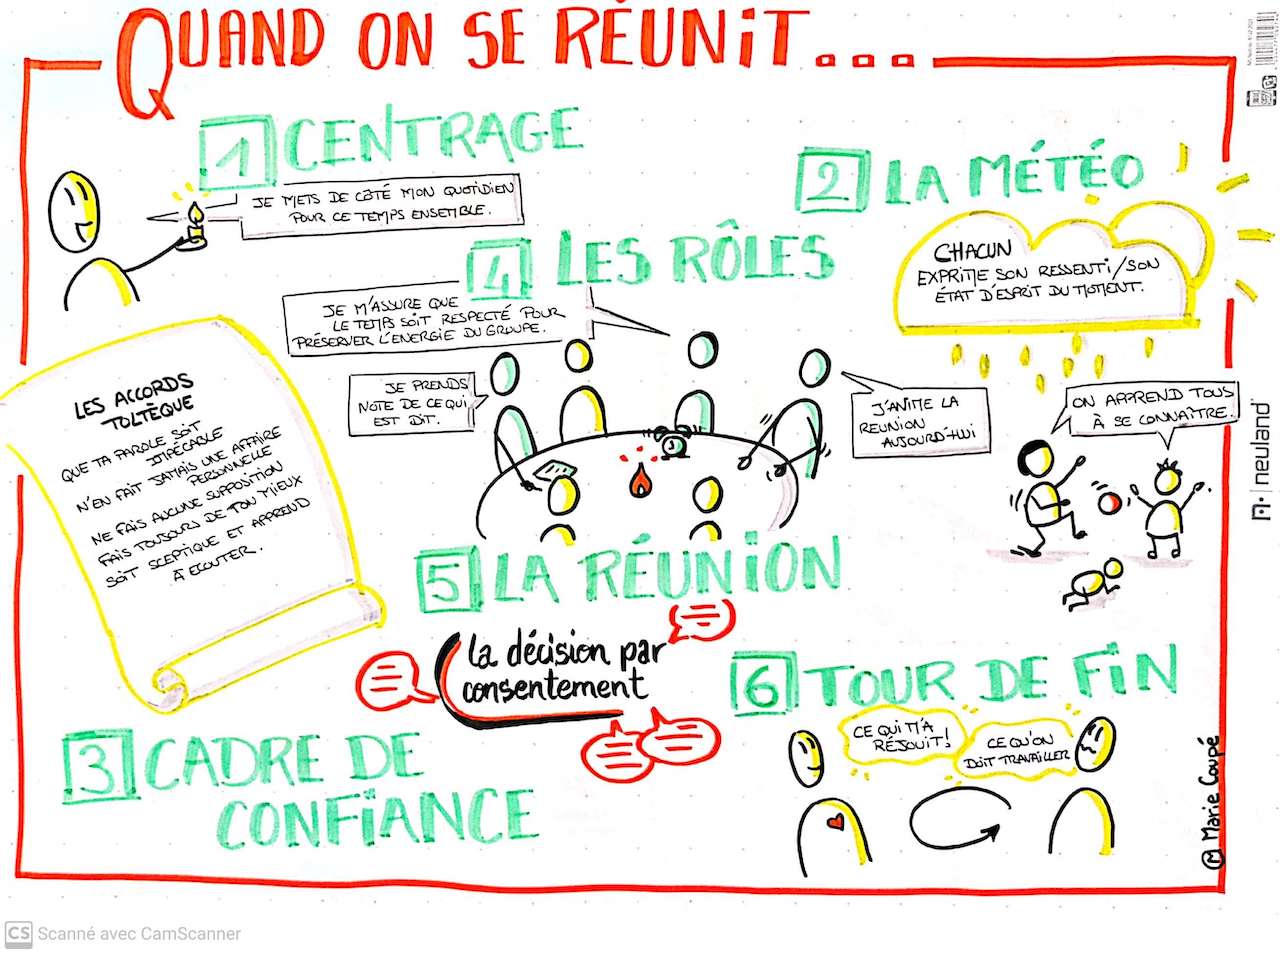 QUAND ON SE RÉUNIT...
1 CENTRAGE
JE METS DE CÔTÉ MON QUOTIDIEN
POUR CE TEMPS ENSEMBLE.
2 LA MÉTÉO
CHACUN
EXPRIME SON RESSENTI/SON
ÉTAT D'ESPRIT DU MOMENT.
ON APPREND TOUS
À SE CONNAÎTRE.
LES ACCORDS
TOLTÈQUE
QUE TA PAROLE SOIT
IMPÉCABLE
N'EN FAIT JAMAIS UNE AFFAIRE
PERSONNELLE
NE FAIS AUCUNE SUPPOSITION
FAIS TOUJOURS DE TON MIEUX
SOIT SCEPTIQUE ET APPREND
À ECOUTER.
3 CADRE DE
CONFIANCE
4 LES RÔLES
JE M'ASSURE QUE
LE TEMPS SOIT RESPECTÉ POUR
PRÉSERVER L'ÉNERGIE DU GROUPE.
JE PRENDS
NOTE DE CE QUI
EST DIT.
J'ANIME LA
REUNION
AUJOURD'HUI
5 LA RÉUNION
La décision par
consentement
6 TOUR DE FIN
CE QUI M'A
RÉJOUIT!
CE QU'ON
DOIT TRAVAILLER
M Marie Coupé
neuland
CS Scanné avec CamScanner